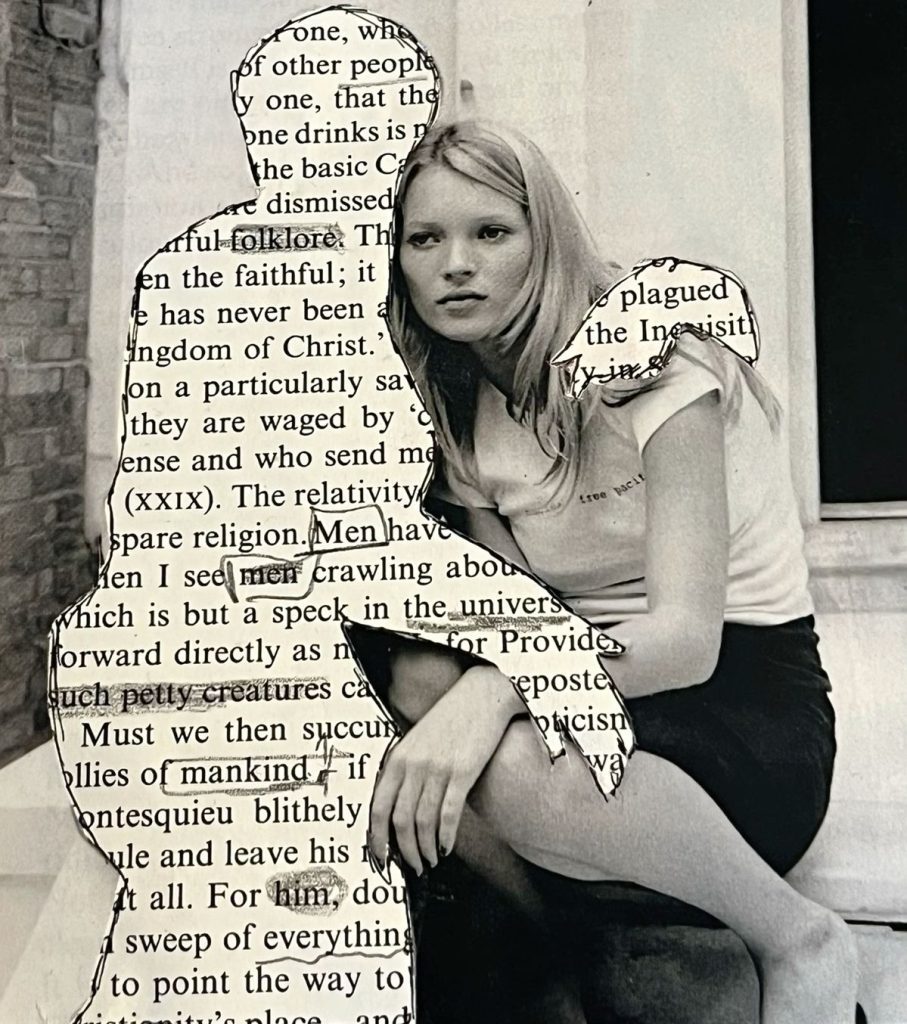 one, who
of other people
y one, that the
one drinks is n
the basic Ca
are dismissed
rful folklore. Th
en the faithful; it
e has never been a
ingdom of Christ.'
on a particularly sav
they are waged by 'c
ense and who send me
(XXIX). The relativity
spare religion. Men have
hen I see men crawling abou
which is but a speck in the univers
forward directly as n
such petty creatures ca
Must we then succum
ollies of mankind, if
ontesquieu blithely
ule and leave his
it all. For him, dou
sweep of everything
to point the way to
ristianity's place and
plagued
the Inquisiti
y in S
for Provide
eposte
pticism
wa
free pacif